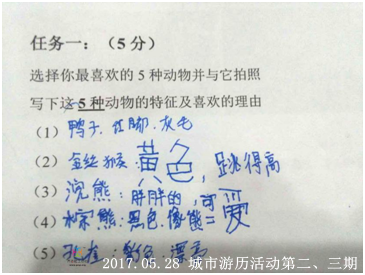 任务一：（5 分）
选择你最喜欢的 5 种动物并与它拍照
写下这 5 种动物的特征及喜欢的理由
（1）鸭子、红脚、灰毛
（2）金丝猴：黄色，跳得高
（3）浣熊：胖胖的，可爱
（4）棕熊：黑色，像熊二
（5）孔雀：彩色、漂亮
2017.05.28 城市游历活动第二、三期